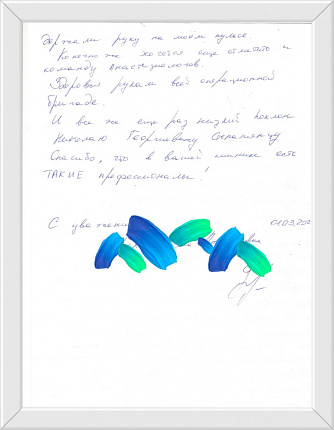 держали руку на моём пульсе.
Конечно же хочется ещё отметить и
команду Анастезиологов.
Здоровья рукам всей операционной
бригаде.
И все же ещё раз низкий поклон
Николаю Георгиевичу
Спасибо, что в вашей клинике есть
ТАКИЕ профессионалы!
С уважени
01.03.202